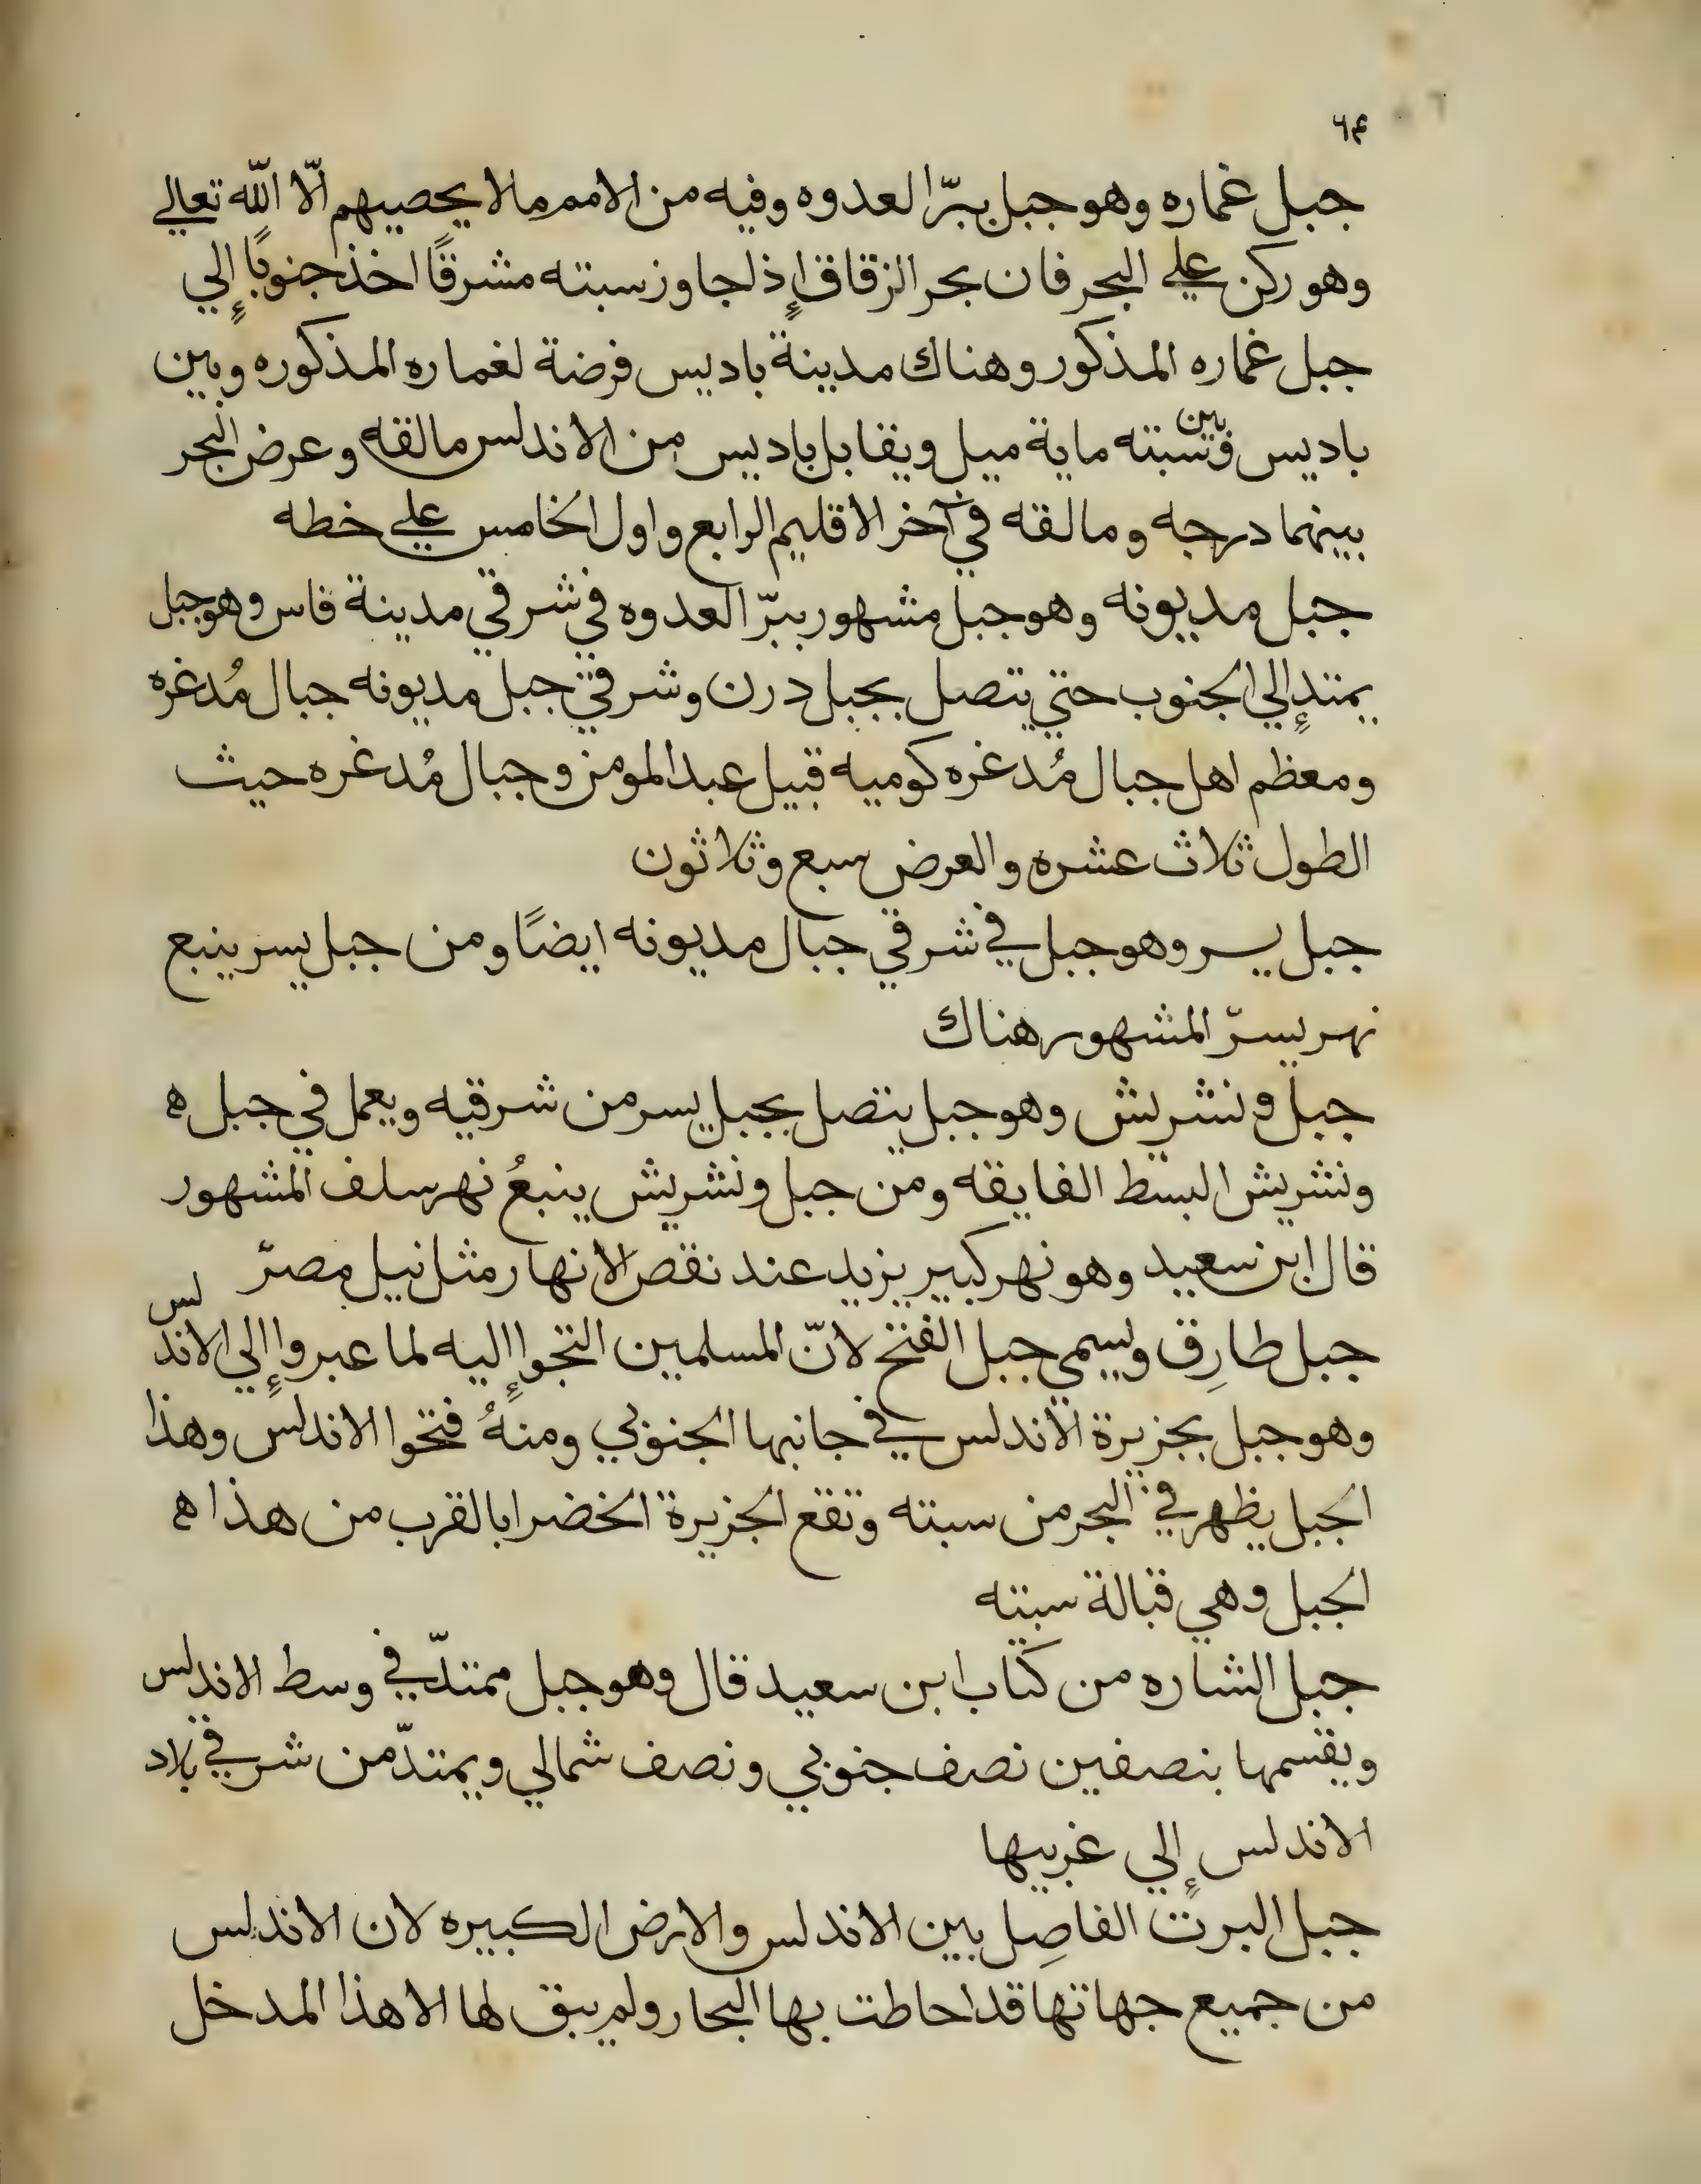 ٦٤
جبل غماره وهو جبل ببرّ العدوه وفيه من الامم ما لا يحصيهم الّا اللّه تعالي
وهو ركن علي البحر فان بحر الزقاق إذا جاوز سبته مشرقًا اخذ جنوبًا إلي
جبل غماره المذكور وهناك مدينة باديس فرضة لغماره المذكوره وبين
باديس وبين سبته ماية ميل ويقابل باديس من الاندلس مالقه وعرض البحر
بينهما درجه ومالقه في آخر الاقليم الرابع واول الخامس علي خطه
جبل مديونه وهو جبل مشهور ببرّ العدوه في شرقي مدينة فاس وهو جبل
يمتد إلي الجنوب حتي يتصل بجبل درن وشرقي جبل مديونه جبال مُدغره
ومعظم اهل جبال مُدغره كوميه قبيل عبد المومن وجبال مُدغره حيث
الطول ثلاث عشره والعرض سبع وثلاثون
جبل يسر وهو جبل في شرقي جبال مديونه ايضًا ومن جبل يسر ينبع
نهر يسرّ المشهور هناك
جبل ونشريش وهو جبل يتصل بجبل يسر من شرقيه ويعمل في جبل ه
ونشريش البسط الفايقه ومن جبل ونشريش ينبعُ نهر سلف المشهور
قال ابن سعيد وهو نهر كبير يزيد عند نقص الانهار مثل نيل مصرّ
جبل طارِق ويسمي جبل الفتح لانّ المسلمين التجوا إليه لما عبروا إلي الاندلس
وهو جبل بجزيرة الاندلس في جانبها الجنوبي ومنهُ فتحوا الاندلس وهذا
الجبل يظهر في البحر من سبته وتقع الجزيرة الخضرا بالقرب من هذا ه
الجبل وهي قبالة سبته
جبل الشاره من كتاب ابن سعيد قال وهو جبل ممتدّ في وسط الاندلس
ويقسمها بنصفين نصف جنوبي ونصف شمالي ويمتدّ من شرقي بلاد
الاندلس إلي غربيها
جبل البرت الفاصِل بين الاندلس والارض الكبيره لان الاندلس
من جميع جهاتها قد احاطت بها البحار ولم يبق لها الا هذا المدخل